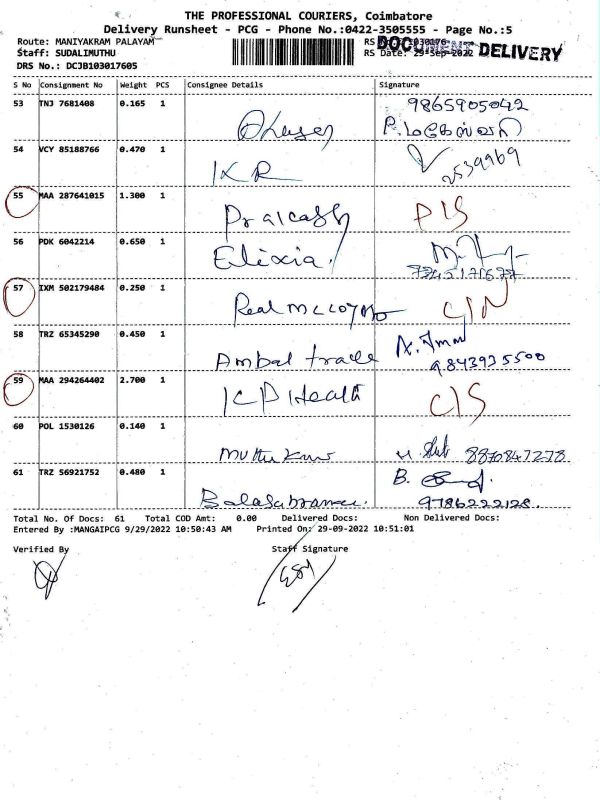 THE PROFESSIONAL COURIERS, Coimbatore
Delivery Runsheet - PCG - Phone No.:0422-3505555 - Page No.:5
Route: MANIYAKRAM PALAYAM RS
Staff: SUDALIMUTHU RS Date: 29-Sep-2022
DOCUMENT DELIVERY
DRS No.: DCJB103017605
S No Consignment No Weight PCS Consignee Details Signature
53 TNJ 7681408 0.165 1 9865905042
P. மகேஸ்வரி
54 VCY 85188766 0.470 1 IKR 2539969
55 MAA 287641015 1.300 1 Pralcash PIS
56 PDK 6042214 0.650 1 Elixia
57 IXM 502179484 0.250 1 Real mccoy CIN
58 TRZ 65345290 0.450 1 Ambal trade
9843935500
59 MAA 294264402 2.700 1 ICP Health CIS
60 POL 1530126 0.140 1 Muthu Kumar 8870847278
61 TRZ 56921752 0.480 1 B.
9786222128
Total No. Of Docs: 61 Total COD Amt: 0.00 Delivered Docs: Non Delivered Docs:
Entered By :MANGAIPCG 9/29/2022 10:50:43 AM Printed On: 29-09-2022 10:51:01
Verified By Staff Signature